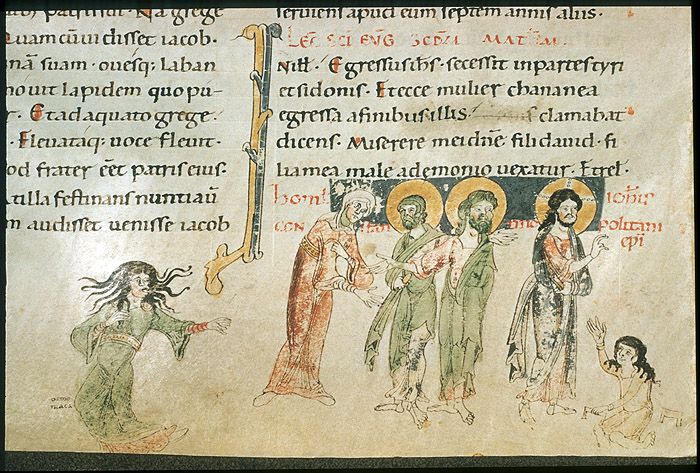 Quamcu uidisset iacob.
nam suam. ouesq; laban
mouit lapidem quo pu-
Et adaquato grege.
Eleuataq; uoce fleuit.
od frater eet patris eius.
tilla festinans nuntiau
m audisset uenisse iacob
seruiens apud eum septem annis aliis.
In ill. Egressus ihs. secessit in partes tyri
et sidonis. Et ecce mulier chananea
egressa a finibus illis clamabat
dicens. Miserere mei dne fili dauid. fi
lia mea male a demonio uexatur. Et rel.
iohis
politani
epi